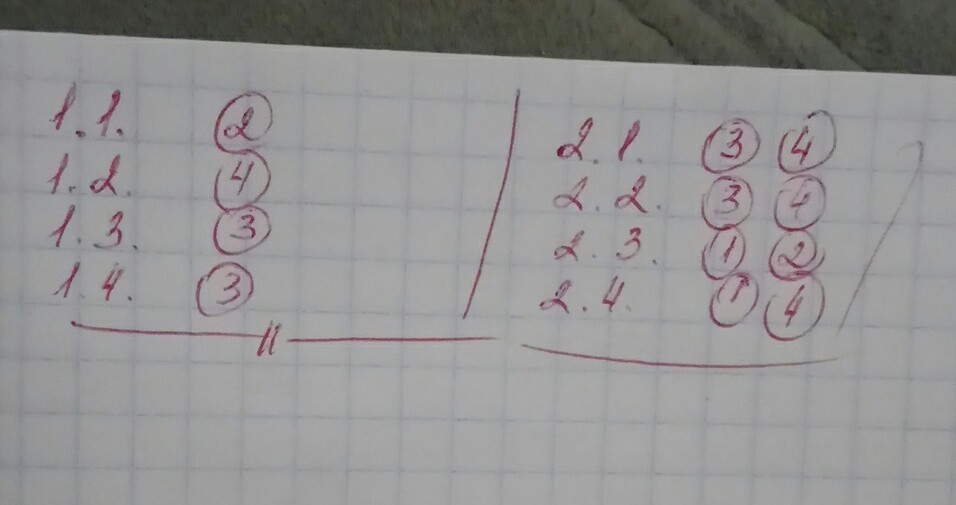 1.1. 2
1.2. 4
1.3. 3
1.4. 3
2.1. 3 4
2.2. 3 4
2.3. 1 2
2.4. 1 4